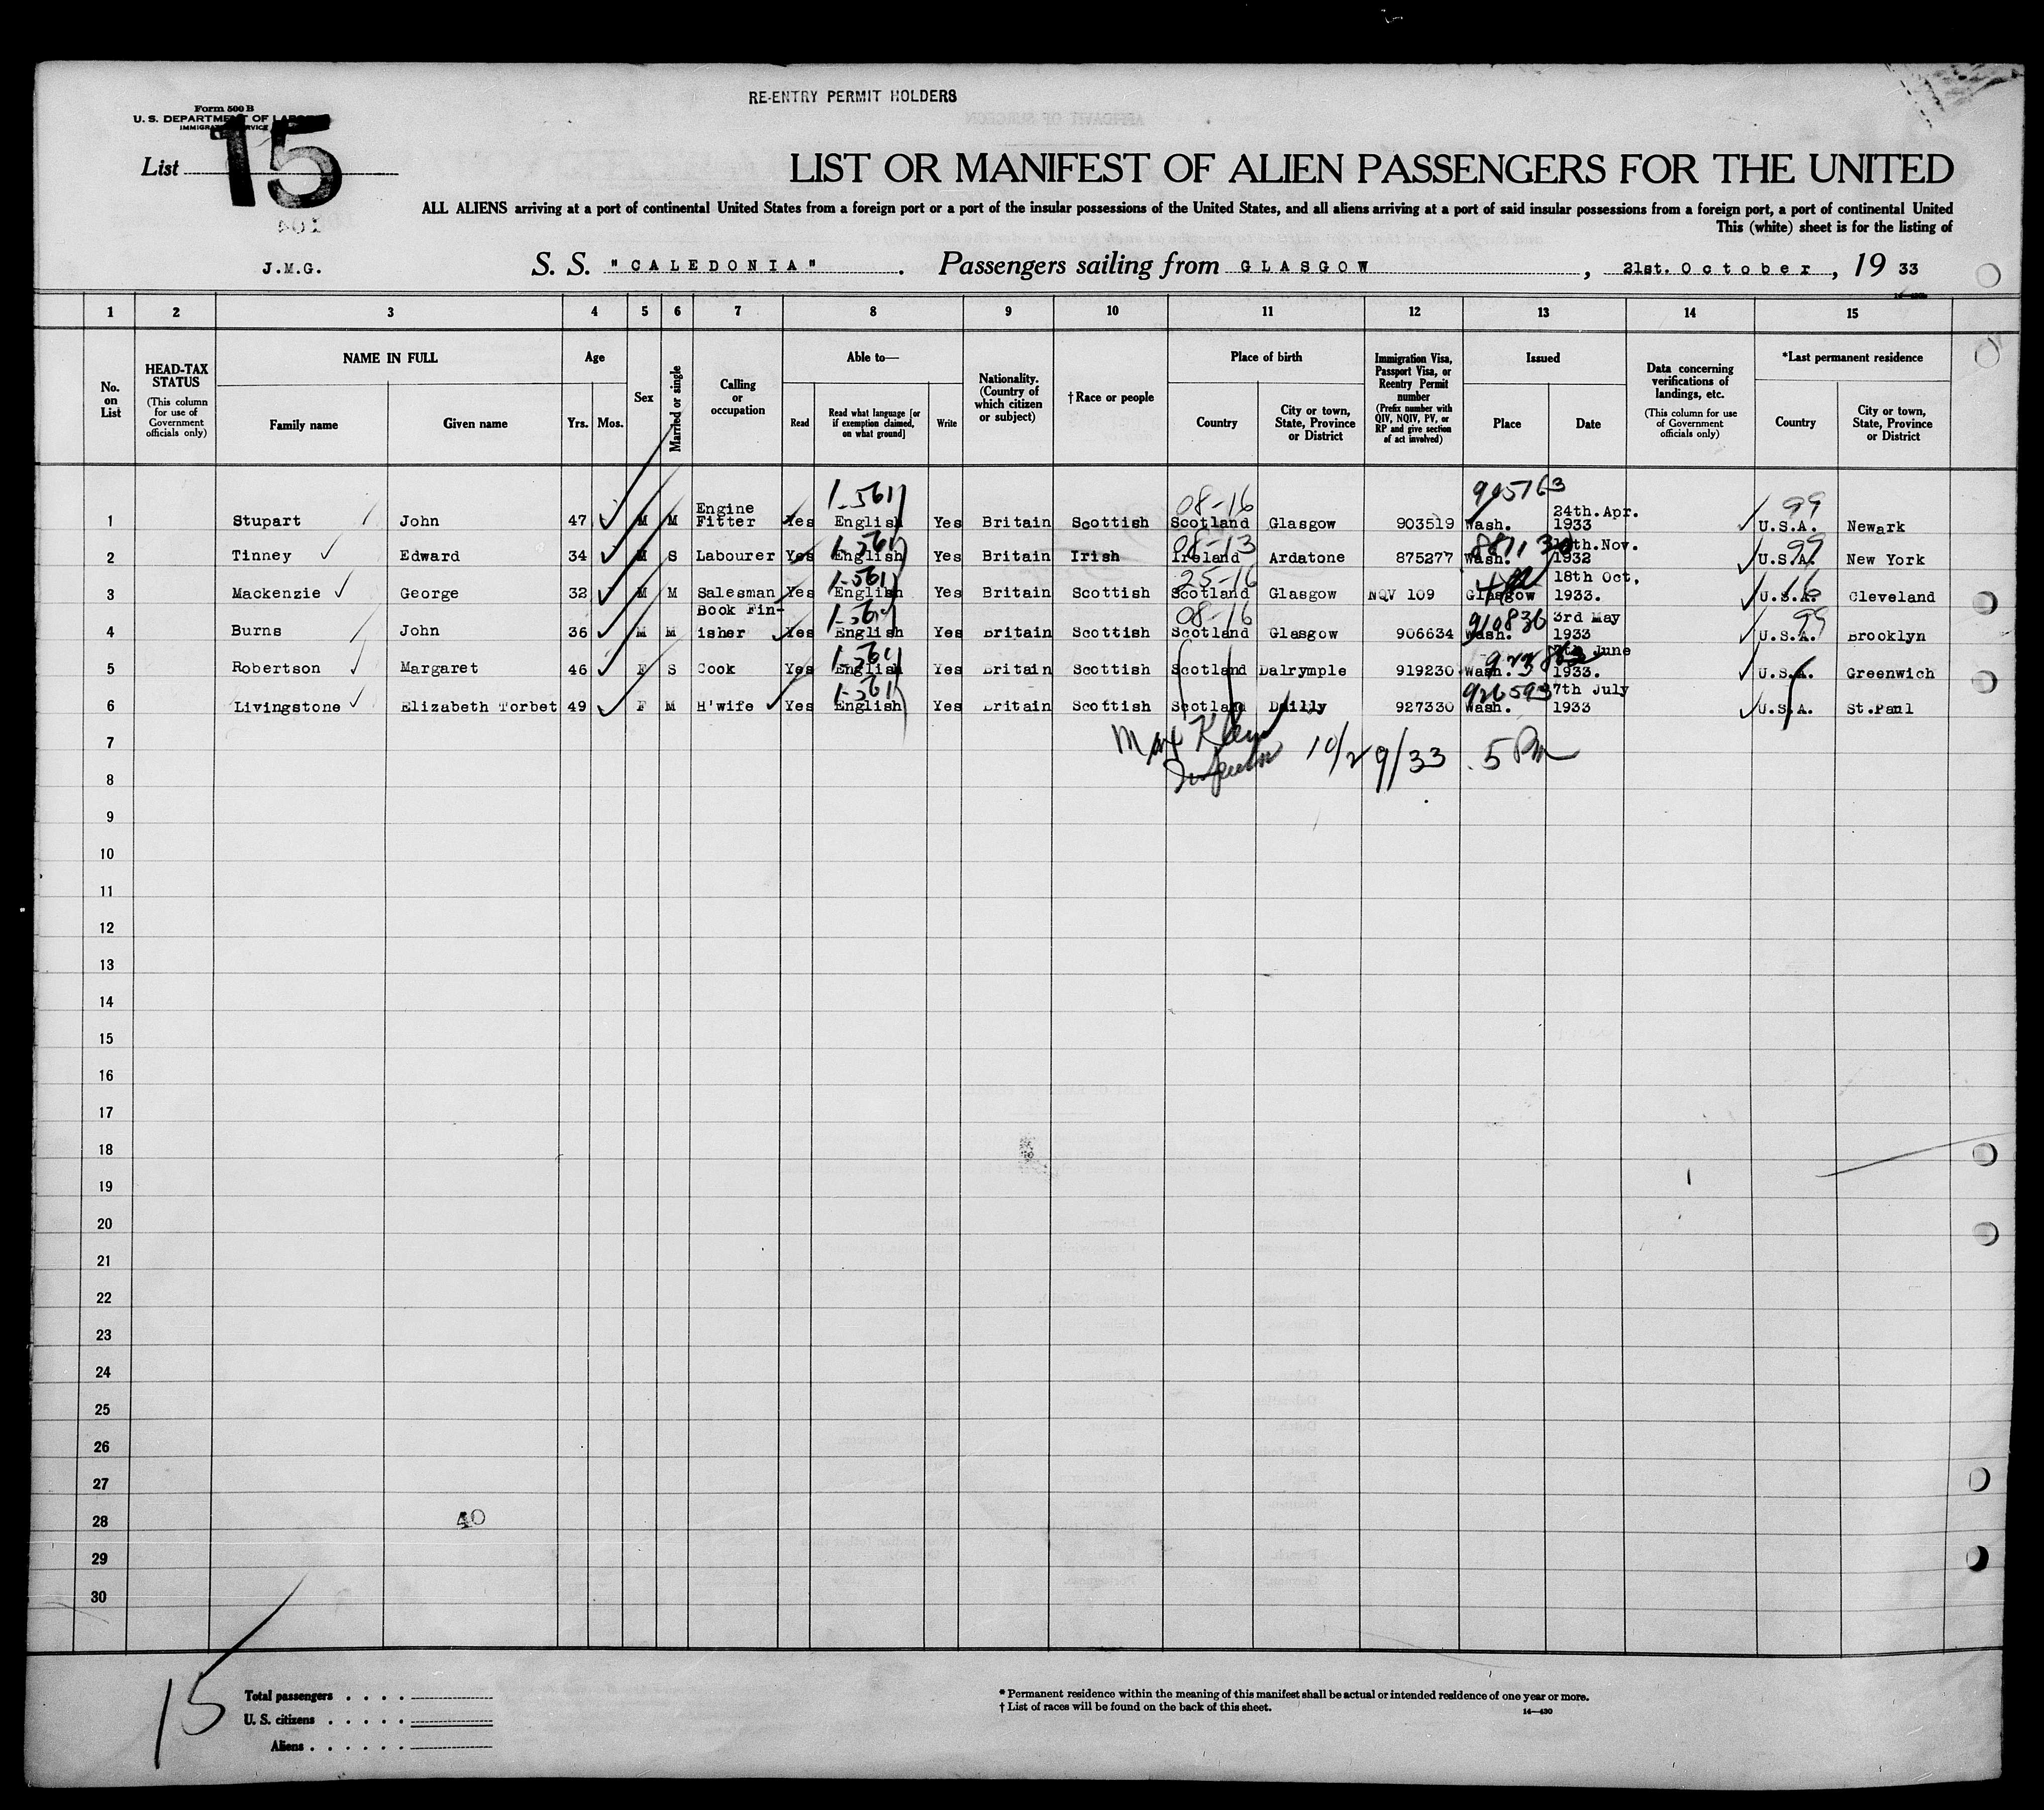 RE-ENTRY PERMIT HOLDERS
Form 500 B
U. S. DEPARTMENT OF LABOR
IMMIGRATION SERVICE
List 15
LIST OR MANIFEST OF ALIEN PASSENGERS FOR THE UNITED
ALL ALIENS arriving at a port of continental United States from a foreign port or a port of the insular possessions of the United States, and all aliens arriving at a port of said insular possessions from a foreign port, a port of continental United
This (white) sheet is for the listing of
J.M.G. S. S. "CALEDONIA" . Passengers sailing from GLASGOW , 21st. October , 19 33
1 2 3 4 5 6 7 8 9 10 11 12 13 14 15
No. on List
HEAD-TAX STATUS (This column for use of Government officials only)
NAME IN FULL Family name Given name
Age Yrs. Mos.
Sex
Married or single
Calling or occupation
Able to— Read Read what language [or if exemption claimed, on what ground] Write
Nationality. (Country of which citizen or subject)
†Race or people
Place of birth Country City or town, State, Province or District
Immigration Visa, Passport Visa, or Reentry Permit number (Prefix number with QIV, NQIV, PV, or RP and give section of act involved)
Issued Place Date
Data concerning verifications of landings, etc. (This column for use of Government officials only)
*Last permanent residence Country City or town, State, Province or District
1-561 08-16 905763 99
1 Stupart John 47 M M Engine Fitter Yes English Yes Britain Scottish Scotland Glasgow 903519 Wash. 24th.Apr. 1933 U.S.A. Newark
1-561 08-13 99
2 Tinney Edward 34 M S Labourer Yes English Yes Britain Irish Ireland Ardatone 875277 Wash. Nov. 1932 U.S.A. New York
1-561 25-16 16
3 Mackenzie George 32 M M Salesman Yes English Yes Britain Scottish Scotland Glasgow NQV 109 Glasgow 18th Oct, 1933. U.S.A. Cleveland
1-561 08-16 910836 99
4 Burns John 36 M M Book Fin-isher Yes English Yes Britain Scottish Scotland Glasgow 906634 Wash. 3rd May 1933 U.S.A. Brooklyn
1-561
5 Robertson Margaret 46 F S Cook Yes English Yes Britain Scottish Scotland Dalrymple 919230 Wash. 7th June 1933. U.S.A. Greenwich
1-561 926593
6 Livingstone Elizabeth Torbet 49 F M H'wife Yes English Yes Britain Scottish Scotland Dailly 927330 Wash. 7th July 1933 U.S.A. St.Paul
7
Max Klein 10/29/33 5 PM
Inspector
8
9
10
11
12
13
14
15
16
17
18
19
20
21
22
23
24
25
26
27
28 40
29
30
15
Total passengers
U. S. citizens
Aliens
* Permanent residence within the meaning of this manifest shall be actual or intended residence of one year or more.
† List of races will be found on the back of this sheet.
14—430